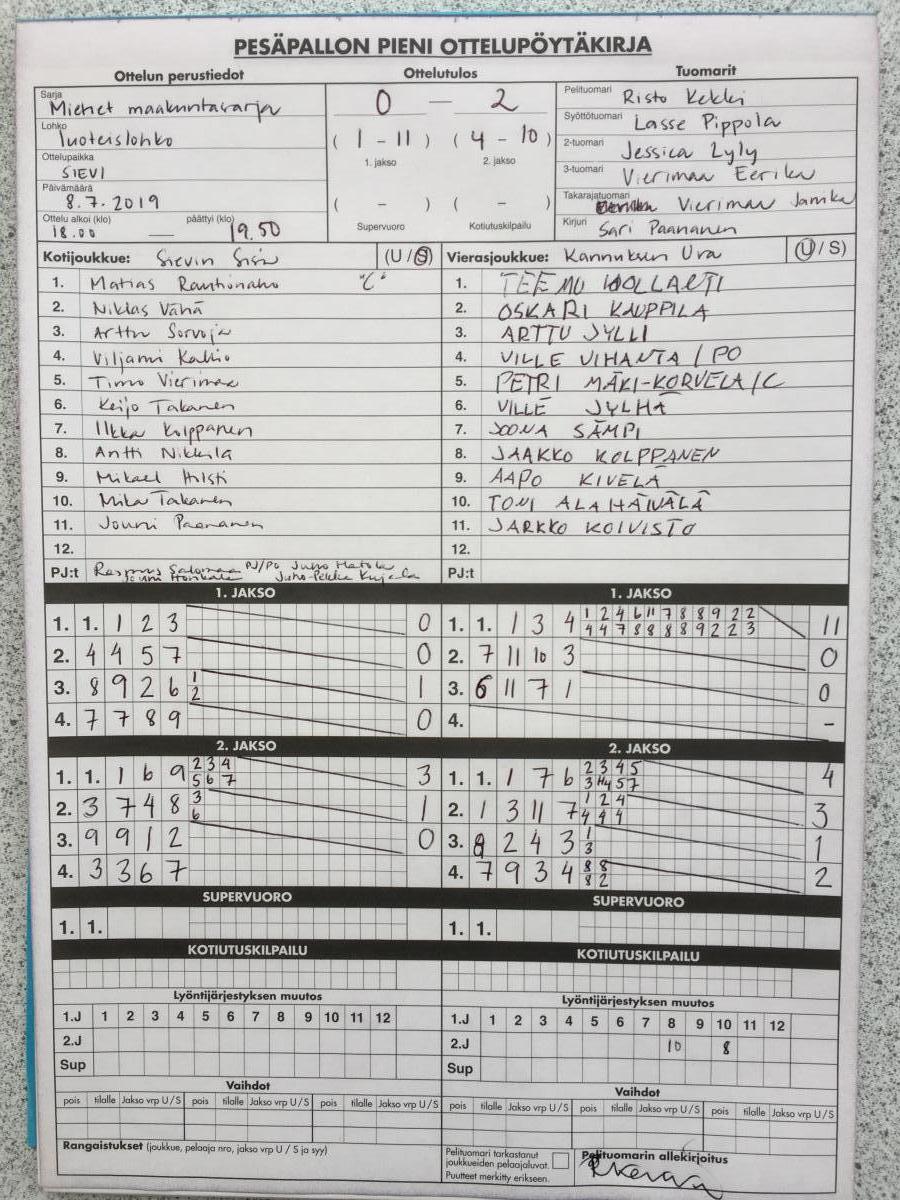 PESÄPALLON PIENI OTTELUPÖYTÄKIRJA
Ottelun perustiedot
Ottelutulos
Tuomarit
Sarja Miehet maakuntasarja
Lohko Tuoteislohko
Ottelupaikka SIEVI
Päivämäärä 8.7.2019
Ottelu alkoi (klo) 18.00 — päättyi (klo) 19.50
0 — 2
( 1 - 11 ) ( 4 - 10 )
1. jakso 2. jakso
( - ) ( - )
Supervuoro Kotiutuskilpailu
Pelituomari Risto Kekki
Syöttötuomari Lasse Pippola
2-tuomari Jessica Lyly
3-tuomari Vierimaa Eerika
Takarajatuomari Vierimaa Jannika
Kirjuri Sari Paananen
Kotijoukkue: Sievin Sisu (U/S)
1. Matias Rautionaho "C"
2. Niklas Vähä
3. Arttu Sorvoja
4. Viljami Kallio
5. Timo Vierimaa
6. Keijo Takanen
7. Ilkka Kolppanen
8. Antti Nikkilä
9. Mikael Hilsti
10. Mika Takanen
11. Jouni Paananen
12.
PJ:t Rasmus Salomaa PJ/PO Juho Matola
Juho-Pekka Kujala
Vierasjoukkue: Kannuksen Ura (U/S)
1. TEEMU HOLLANTI
2. OSKARI KAUPPILA
3. ARTTU JYLLI
4. VILLE VIHANTA / PO
5. PETRI MÄKI-KORVELA/C
6. VILLE JYLHÄ
7. JOONA SÄMPI
8. JAAKKO KOLPPANEN
9. AAPO KIVELÄ
10. TONI ALAHÄIVÄLÄ
11. JARKKO KOIVISTO
12.
PJ:t
1. JAKSO
1. 1. 1 2 3 0
2. 4 4 5 7 0
3. 8 9 2 6 1 1
2
4. 7 7 8 9 0
1. JAKSO
1. 1. 1 3 4 1 2 4 6 11 7 8 8 9 2 2 11
4 4 7 8 8 8 8 9 2 2 3
2. 7 11 10 3 0
3. 6 11 7 1 0
4. -
2. JAKSO
1. 1. 1 6 9 2 3 4 3
5 6 7
2. 3 7 4 8 3 1
6
3. 9 9 1 2 0
4. 3 3 6 7
2. JAKSO
1. 1. 1 7 6 2 3 4 5 4
3 4 5 7
2. 1 3 11 7 1 2 4 3
4 4 4
3. 8 2 4 3 1 1
3
4. 7 9 3 4 8 8 2
8 2
SUPERVUORO
1. 1.
SUPERVUORO
1. 1.
KOTIUTUSKILPAILU
KOTIUTUSKILPAILU
Lyöntijärjestyksen muutos
1.J 1 2 3 4 5 6 7 8 9 10 11 12
2.J
Sup
Lyöntijärjestyksen muutos
1.J 1 2 3 4 5 6 7 8 9 10 11 12
2.J 10 8
Sup
Vaihdot
pois tilalle Jakso vrp U/S pois tilalle Jakso vrp U/S pois tilalle Jakso vrp U/S
Vaihdot
pois tilalle Jakso vrp U/S pois tilalle Jakso vrp U/S pois tilalle Jakso vrp U/S
Rangaistukset (joukkue, pelaaja nro, jakso vrp U / S ja syy)
Pelituomari tarkastanut
joukkueiden pelaajaluvat.
Puutteet merkitty erikseen.
Pelituomarin allekirjoitus